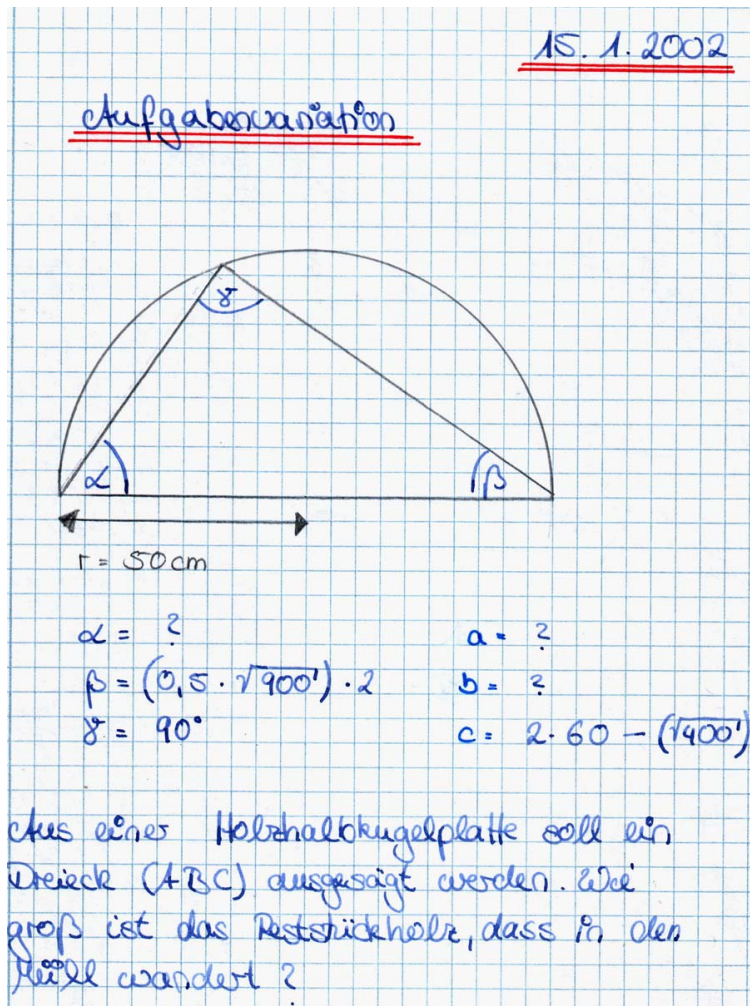 15. 1. 2002
Aufgabenvariation
γ
α
β
r = 50cm
α = ?
β = (0,5 · √900) · 2
γ = 90°
a = ?
b = ?
c = 2 · 60 − (√400)
Aus einer Holzhalbkugelplatte soll ein
Dreieck (ABC) ausgesägt werden. Wie
groß ist das Reststückholz, dass in den
Müll wandert?